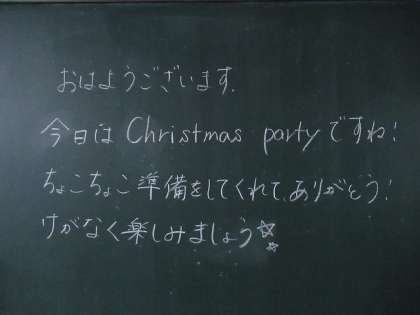 おはようございます.
今日は Christmas party ですね!
ちょこちょこ準備をしてくれて、ありがとう!
けがなく楽しみましょう☆☆